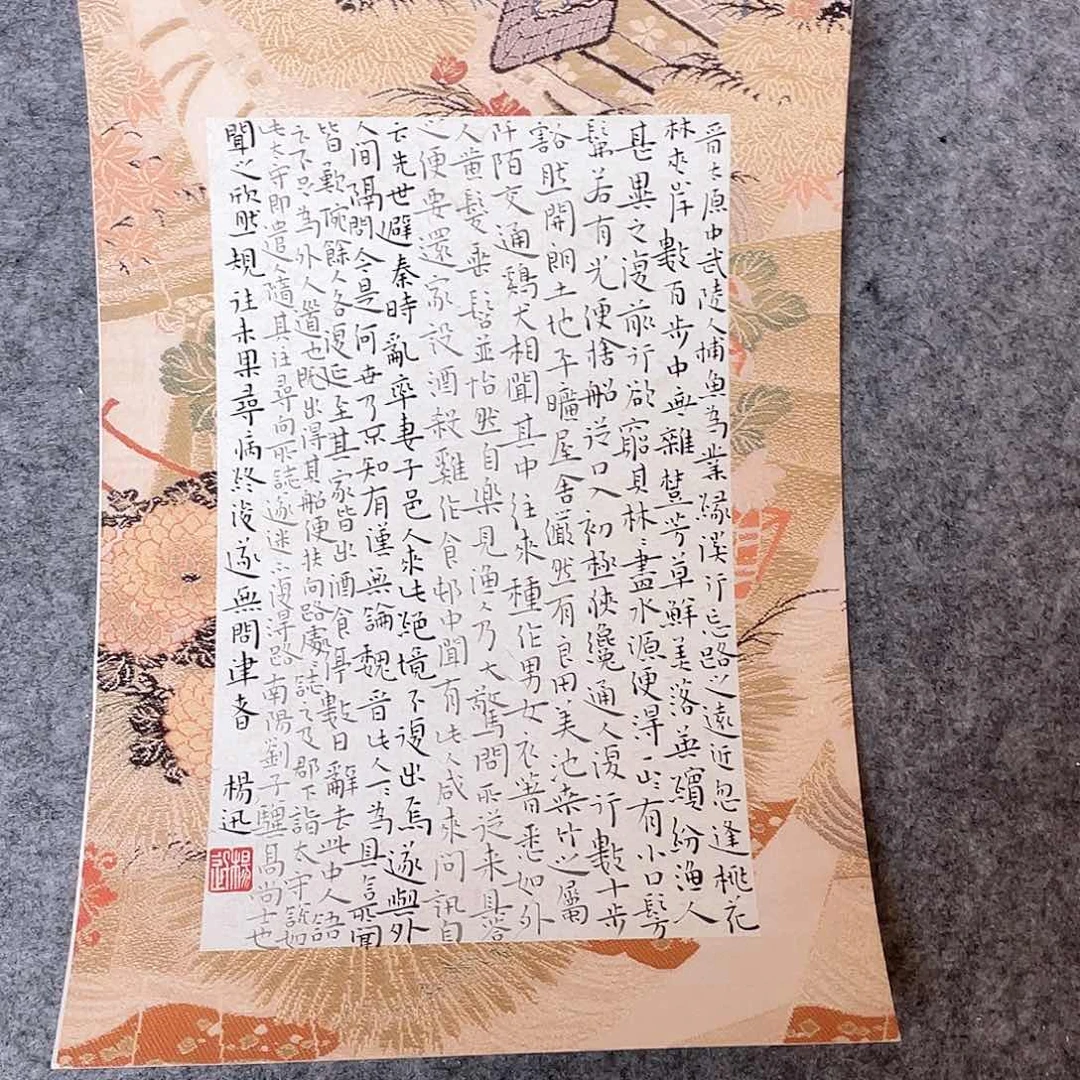 晋太原中武陵人捕魚為業緣溪行忘路之遠近忽逢桃花
林夾岸數百步中無雜樹芳草鮮美落英繽紛漁人
甚異之復前行欲窮其林〻盡水源便得一山〻有小口髣
髴若有光便捨船從口入初極狹纔通人復行數十步
豁然開朗土地平曠屋舍儼然有良田美池桑竹之屬
阡陌交通鷄犬相聞其中往來種作男女衣著悉如外
人黃髮垂髫並怡然自樂見漁人乃大驚問所從来具答
之便要還家設酒殺雞作食邨中聞有此人咸來問訊自
云先世避秦時亂率妻子邑人來此絕境不復出焉遂與外
人間隔問今是何世乃不知有漢無論魏晉此人一〻為具言所聞
皆歎惋餘人各復延至其家皆出酒食停數日辭去此中人語
云不足為外人道也既出得其船便扶向路處〻誌之及郡下詣太守說如
此太守即遣人隨其往尋向所誌遂迷不復得路南陽劉子驥高尚士也
聞之欣然規往未果尋病終後遂無問津者 楊迅
楊迅